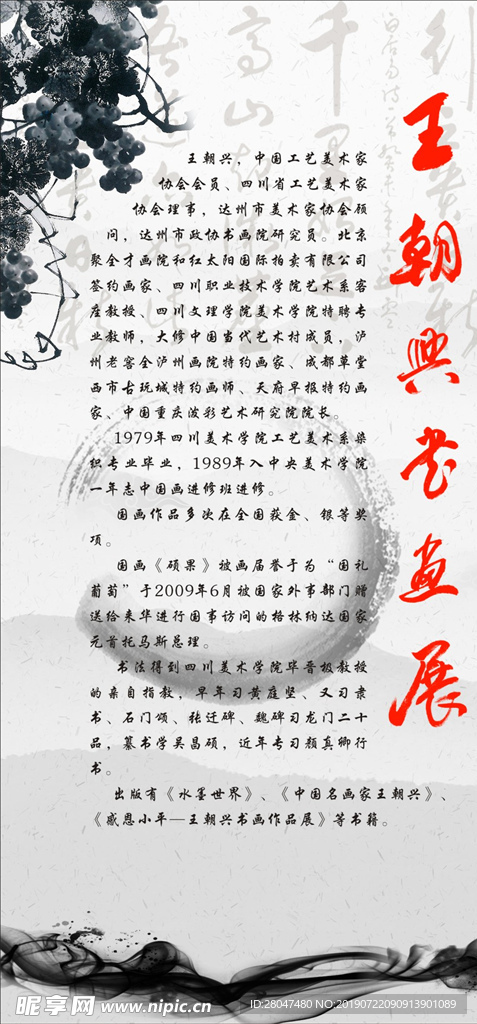 王朝興书画展
王朝兴，中国工艺美术家
协会会员、四川省工艺美术家
协会理事，达州市美术家协会顾
问，达州市政协书画院研究员。北京
聚全才画院和红太阳国际拍卖有限公司
签约画家、四川职业技术学院艺术系客
座教授、四川文理学院美术学院特聘专
业教师，大修中国当代艺术村成员，泸
州老窖全泸州画院特约画家、成都草堂
西市古玩城特约画师、天府早报特约画
家、中国重庆泼彩艺术研究院院长。
1979年四川美术学院工艺美术系染
织专业毕业，1989年入中央美术学院
一年志中国画进修班进修。
国画作品多次在全国获金、银等奖
项。
国画《硕果》被画届誉于为“国礼
葡萄”于2009年6月被国家外事部门赠
送给来华进行国事访问的格林纳达国家
元首托马斯总理。
书法得到四川美术学院毕晋极教授
的亲自指教，早年习黄庭坚、又习隶
书、石门颂、张迁碑、魏碑习龙门二十
品，篆书学吴昌硕，近年专习颜真卿行
书。
出版有《水墨世界》、《中国名画家王朝兴》、
《感恩小平—王朝兴书画作品展》等书籍。
昵享网 www.nipic.cn
ID:28047480 NO:20190722090913901089